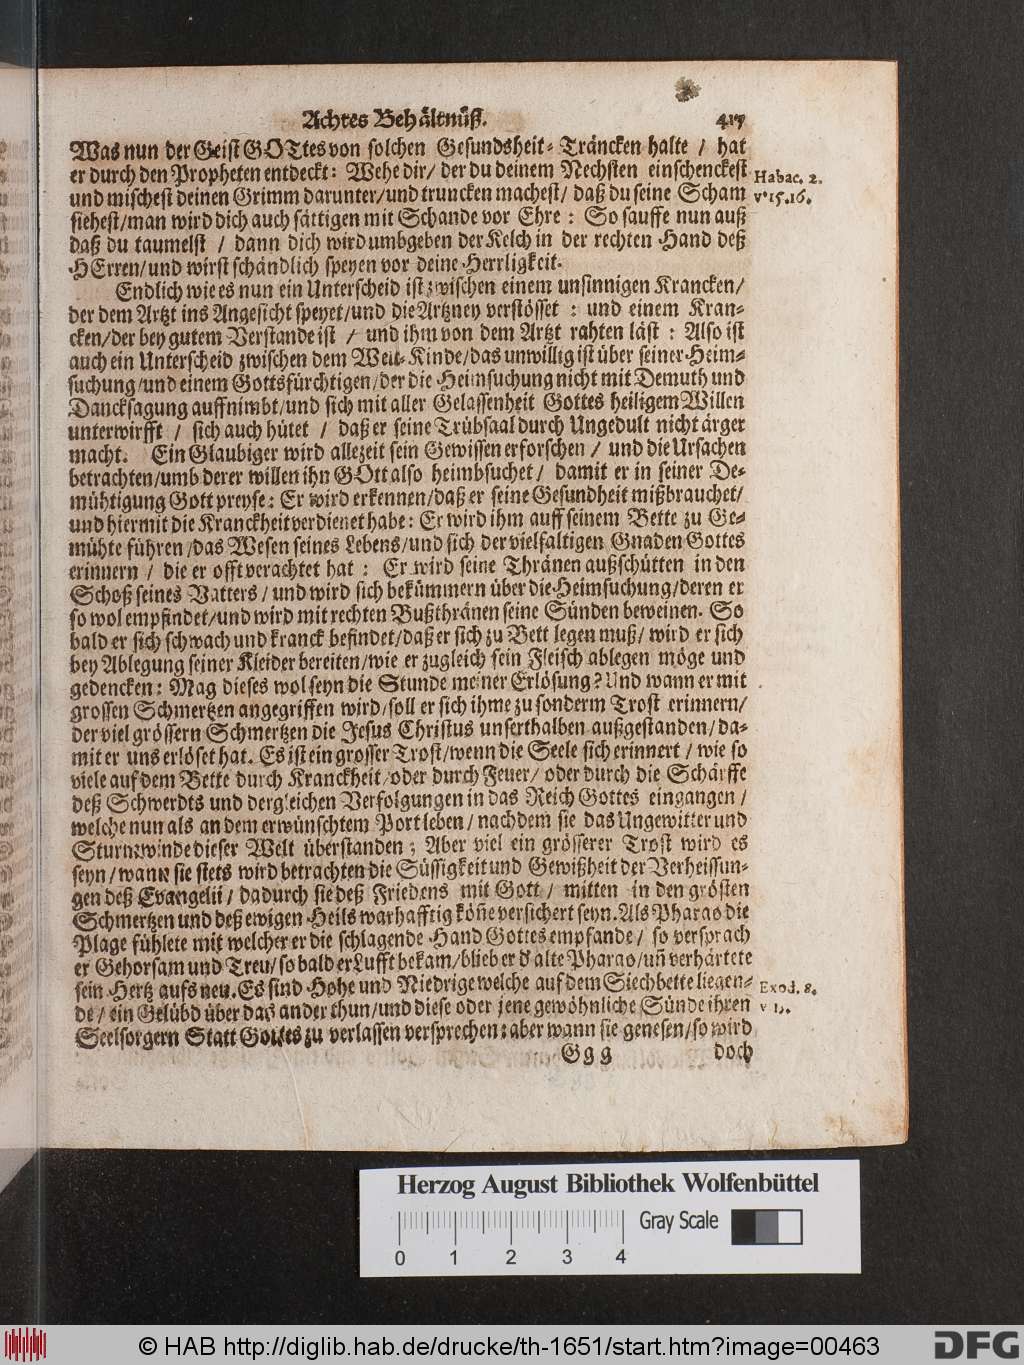 Achtes Behältnüß. 417
Was nun der Geist GOTtes von solchen Gesundsheit-Träncken halte / hat
er durch den Propheten entdeckt: Wehe dir / der du deinem Nechsten einschenckest
und mischest deinen Grimm darunter / und truncken machest / daß du seine Scham
siehest / man wird dich auch sättigen mit Schande vor Ehre : So sauffe nun auß
daß du taumelst / dann dich wird umbgeben der Kelch in der rechten Hand deß
HErren / und wirst schändlich speyen vor deine Herrligkeit.
Habac. 2.
v. 15. 16.
Endlich wie es nun ein Unterscheid ist zwischen einem unsinnigen Krancken /
der dem Artzt ins Angesicht speyet / und die Artzney verstösset : und einem Kran-
cken / der bey gutem Verstande ist / und ihm von dem Artzt rahten läst : Also ist
auch ein Unterscheid zwischen dem Welt-Kinde / das unwillig ist über seiner Heim-
suchung / und einem Gottsfürchtigen / der die Heimsuchung nicht mit Demuth und
Dancksagung auffnimbt / und sich mit aller Gelassenheit Gottes heiligem Willen
unterwirfft / sich auch hütet / daß er seine Trübsaal durch Ungedult nicht ärger
macht. Ein Glaubiger wird allezeit sein Gewissen erforschen / und die Ursachen
betrachten / umb derer willen ihn GOtt also heimbsuchet / damit er in seiner De-
mühtigung Gott preyse: Er wird erkennen / daß er seine Gesundheit mißbrauchet /
und hiermit die Kranckheit verdienet habe: Er wird ihm auff seinem Bette zu Ge-
mühte führen / das Wesen seines Lebens / und sich der vielfaltigen Gnaden Gottes
erinnern / die er offt verachtet hat : Er wird seine Thränen außschütten in den
Schoß seines Vatters / und wird sich bekümmern über die Heimsuchung / deren er
so wol empfindet / und wird mit rechten Bußthränen seine Sünden beweinen. So
bald er sich schwach und kranck befindet / daß er sich zu Bett legen muß / wird er sich
bey Ablegung seiner Kleider bereiten / wie er zugleich sein Fleisch ablegen möge und
gedencken: Mag dieses wol seyn die Stunde meiner Erlösung? Und wann er mit
grossen Schmertzen angegriffen wird / soll er sich ihme zu sonderm Trost erinnern /
der viel grössern Schmertzen die Jesus Christus unserthalben außgestanden / da-
mit er uns erlöset hat. Es ist ein grosser Trost / wenn die Seele sich erinnert / wie so
viele auf dem Bette durch Kranckheit / oder durch Feuer / oder durch die Schärffe
deß Schwerdts und dergleichen Verfolgungen in das Reich Gottes eingangen /
welche nun als an dem erwünschtem Port leben / nachdem sie das Ungewitter und
Sturmwinde dieser Welt überstanden ; Aber viel ein grösserer Trost wird es
seyn / wann sie stets wird betrachten die Süssigkeit und Gewißheit der Verheissun-
gen deß Evangelii / dadurch sie deß Friedens mit Gott / mitten in den grösten
Schmertzen und deß ewigen Heils warhafftig köñe versichert seyn. Als Pharao die
Plage fühlete mit welcher er die schlagende Hand Gottes empfande / so versprach
er Gehorsam und Treu / so bald er Lufft bekam / blieb er d' alte Pharao / uñ verhärtete
sein Hertz aufs neu. Es sind Hohe und Niedrige welche auf dem Siechbette liegen-
de / ein Gelübd über das ander thun / und diese oder jene gewöhnliche Sünde ihren
Seelsorgern Statt Gottes zu verlassen versprechen: aber wann sie genesen / so wird
Exod. 8.
Ggg doch
Herzog August Bibliothek Wolfenbüttel
Gray Scale
0 1 2 3 4
© HAB http://diglib.hab.de/drucke/th-1651/start.htm?image=00463
DFG